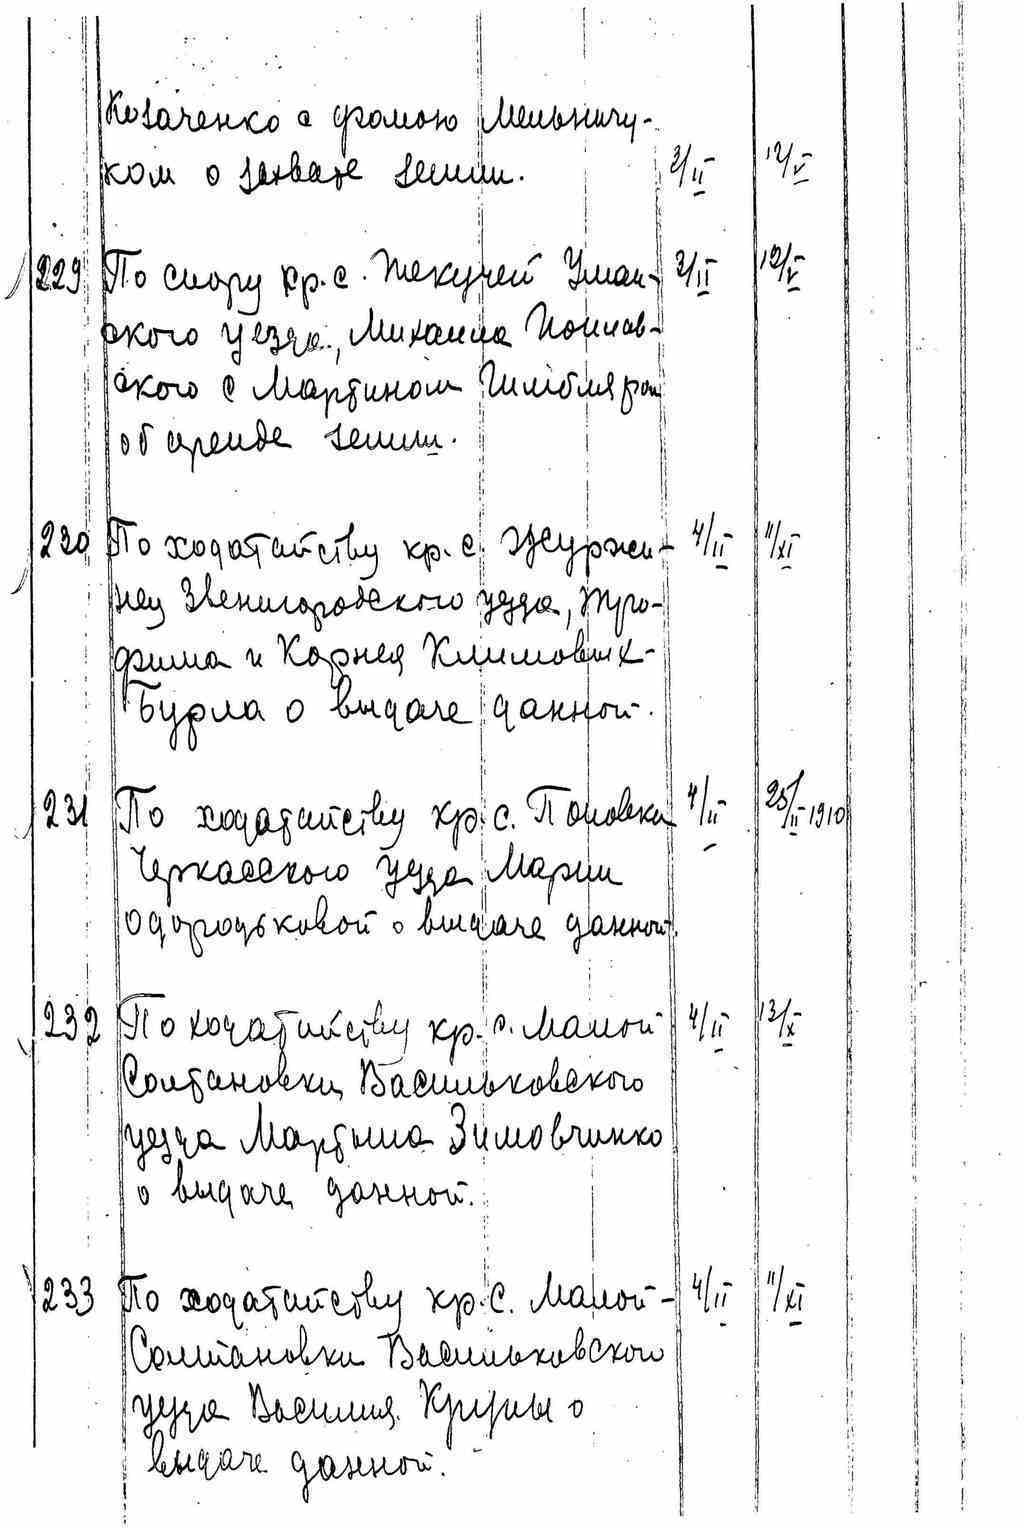 Козаченко с Фомою Мельничу-
ком о захвате земли. 3/II 12/V
229 По спору кр. с. Текучей Уман-
ского уезда, Михаила Поплав-
ского с Мартином
об аренде земли. 3/II 12/V
230 По ходатайству кр. с. Журжи-
нец Звенигородского уезда, Тро-
фима и Корнея Климовых-
Бурла о выдаче данной. 4/II 11/XI
231 По ходатайству кр. с. Поповки
Черкасского уезда Марии
о выдаче данной. 4/II 25/II-1910
232 По ходатайству кр. с. Малой
Солтановки, Васильковского
уезда Мартына Зимовчинко
о выдаче данной. 4/II 13/X
233 По ходатайству кр. с. Малой-
Солтановки Васильковского
уезда Василия Крупы о
выдаче данной. 4/II 11/XI